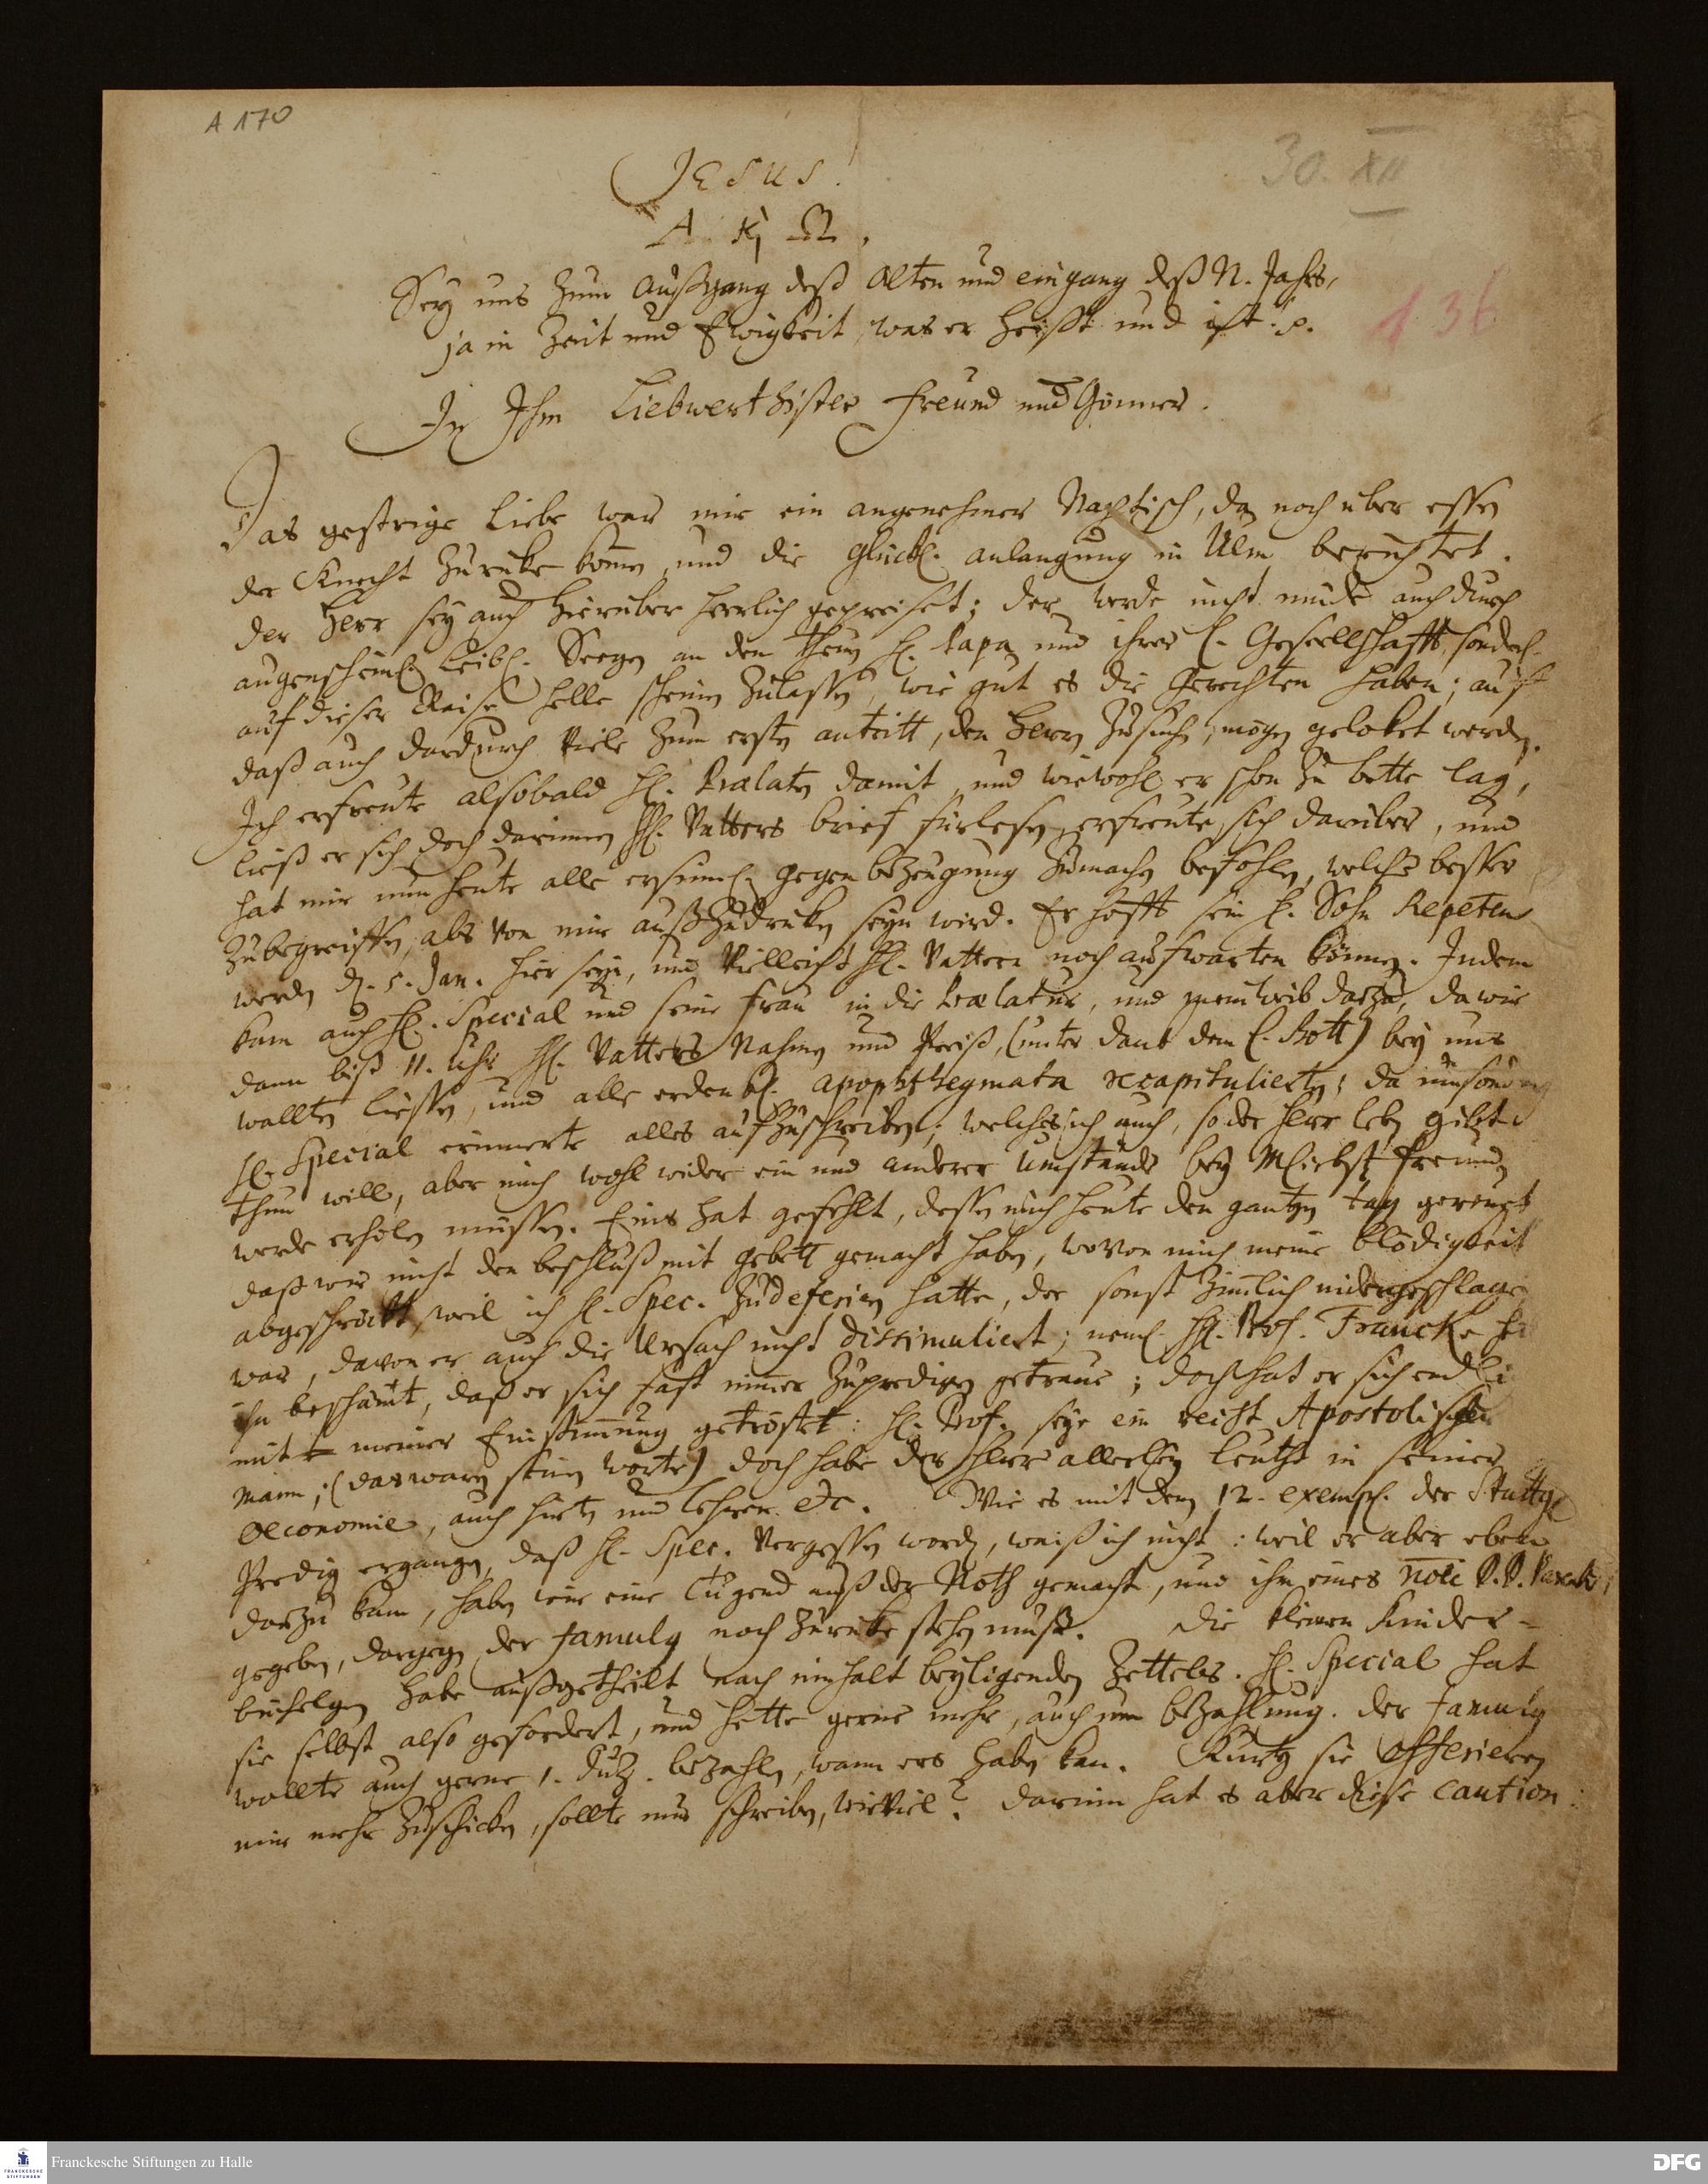 A 170
30. XII
JESUS.
A. κ Ω.
Sey uns zum Außgang deß Alten und eingang deß N. Jahrs,
136
ja in Zeit und Ewigkeit, was er heißt und ist. p.
In Ihm Liebwerthister Freund und Gönner.
Das gestrige liebe war mir ein angenehmer Nachtisch, da noch über essen
der Knecht zuruke kom̄en, und die glückl. anlangung in Ulm berichtet.
der Herr sey auch hierüber herrlich gepreiset; der werde nicht müde auch durch
augenscheinl. Leibl. Seegen an dem theuren H. Papa und ihrer l. Gesellschafft, sonderl.
auf dieser Raise helle scheinen zulassen, wie gut es die Gerechten haben; auf
daß auch dardurch Viele zum ersten antritt, den Herrn zusuchen, mögen geloket werden.
Ich erfreute alsobald H. Prælaten damit, und wiewohl er schon zu bette lag,
ließ er sich doch darinnen H. Vatters brief fürlesen, erfreute sich darüber, und
hat mir nun heute alle ersinnl. gegenbezeugung zumachen befohlen, welche besser
zubegreiffen, als von mir außzudruken seyn wird. Er hofft sein H. Sohn Repetens
werde d. 5. Jan. hier seyn, und Villeicht H. Vattern noch aufwarten können. Indem
kam auch H. Special und seine Frau in die Prælatur, und mein weib darzu, da wir
dann biß 11. Uhr H. Vatters Nahmen und Preiß, (unter danck dem l. Gott) bey uns
wallten liessen, und alle erdenkl. apophthegmata recapitulierten; da insonder
H. Special erinnerte alles aufzuschreiben; welches ich auch, so der Herr leben gibt
thun will, aber mich wohl wider ein und anderer Umstände bey Mliebst. Freund
werde erholen müssen. Eins hat gefehlt, dessen mich heute den gantzen tag gereuet
daß wir nicht den beschluß mit gebett gemacht haben, wovon mich meine blödigkeit
abgeschröckt, weil ich H. Spec. zu deferieren hatte, der sonst zimlich nidergeschlagen
war, davon er auch die Ursach nicht dissimuliert; neml. H. Prof. Francke
ihn beschämt, daß er sich fast nim̄er zupredigen getraue; doch hat er sich endli
mit meiner Einstimmung getröstet: H. Prof. seye ein recht Apostolischer
Mann; (das waren seine worte) doch habe der Herr allerley leuthe in seiner
Oeconomie, auch Hirten und Lehrer. etc. Wie es mit den 12. exempl. der Stuttg.
Predig ergangen, daß H. Spec. vergessen worden, weiß ich nicht: weil er aber eben
darzu kam, haben wir eine Tugend auß der Noth gemacht, und ihm eines
gegeben, dargegen der Famulus noch zurüke stehen muß. Die kleinen Kinder-
büchelgen habe außgetheilt nach innhalt beyligenden Zettels. H. Special hat
sie selbst also gefordert, und hette gerne mehr, auch um bezahlung. Der Famulus
wollte auch gerne 1. Dutz. bezahlen, wann ers haben kan. Kurtz sie offerieren
mir mehr zuschicken, sollte nur schreiben, wieviel? darinn hat es aber diese caution:
Franckesche Stiftungen zu Halle
FRANCKESCHE STIFTUNGEN
DFG